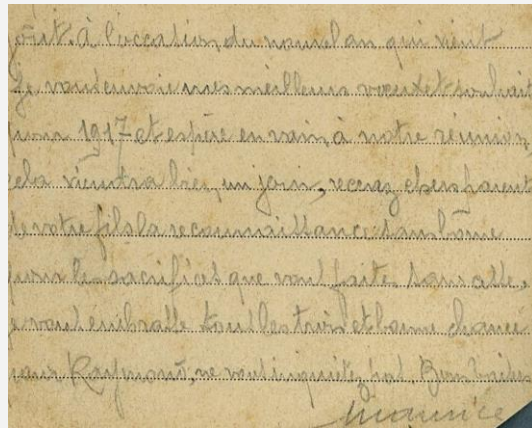 août. à l'occasion du nouvel an qui vient
Je vous envoie mes meilleurs voeux et souhait
pour 1917 et espère en vain, à notre réunion,
cela viendra bien un jour, recevez chers parent
de votre fils la reconnaissance sans borne
pour les sacrifices que vous faite, sans cesse,
je vous embrasse tous les trois et bonne chance
pour Raymond, ne vous inquiétez pas. Bons baisers
Maurice